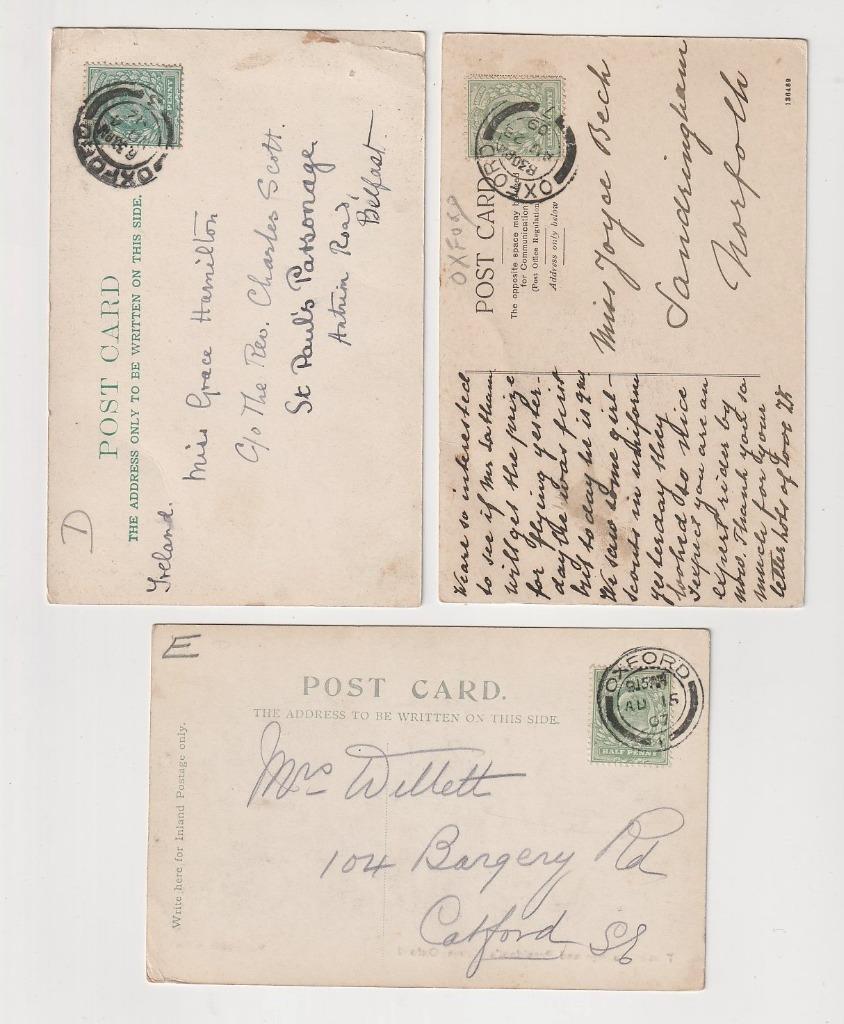 D
POST CARD
THE ADDRESS ONLY TO BE WRITTEN ON THIS SIDE.
PENNY
OXFORD
8.30PM
Ireland.
Miss Grace Hamilton
C/o The Rev. Charles Scott.
St Paul's Parsonage
Antrim Road,
Belfast.
OXFORD
POST CARD
The opposite space may be used
for Communication
(Post Office Regulation
Address only below
OXFORD
8.30PM
09
Miss Joyce Beck
Sandringham
Norfolk
136489
We are so interested
to see if Mr Latham
will get the prize
for flying yester-
day he was first
but to day he is 2nd.
We saw some girl-
scouts in uniform
yesterday they
looked so nice
I expect you are an
expert rider by
now. Thank you so
much for your
letter lots of love
E
POST CARD.
THE ADDRESS TO BE WRITTEN ON THIS SIDE.
Write here for Inland Postage only.
HALF PENNY
OXFORD
9.15AM
AU 15
07
Mrs Willett
104 Bargery Rd
Catford SE